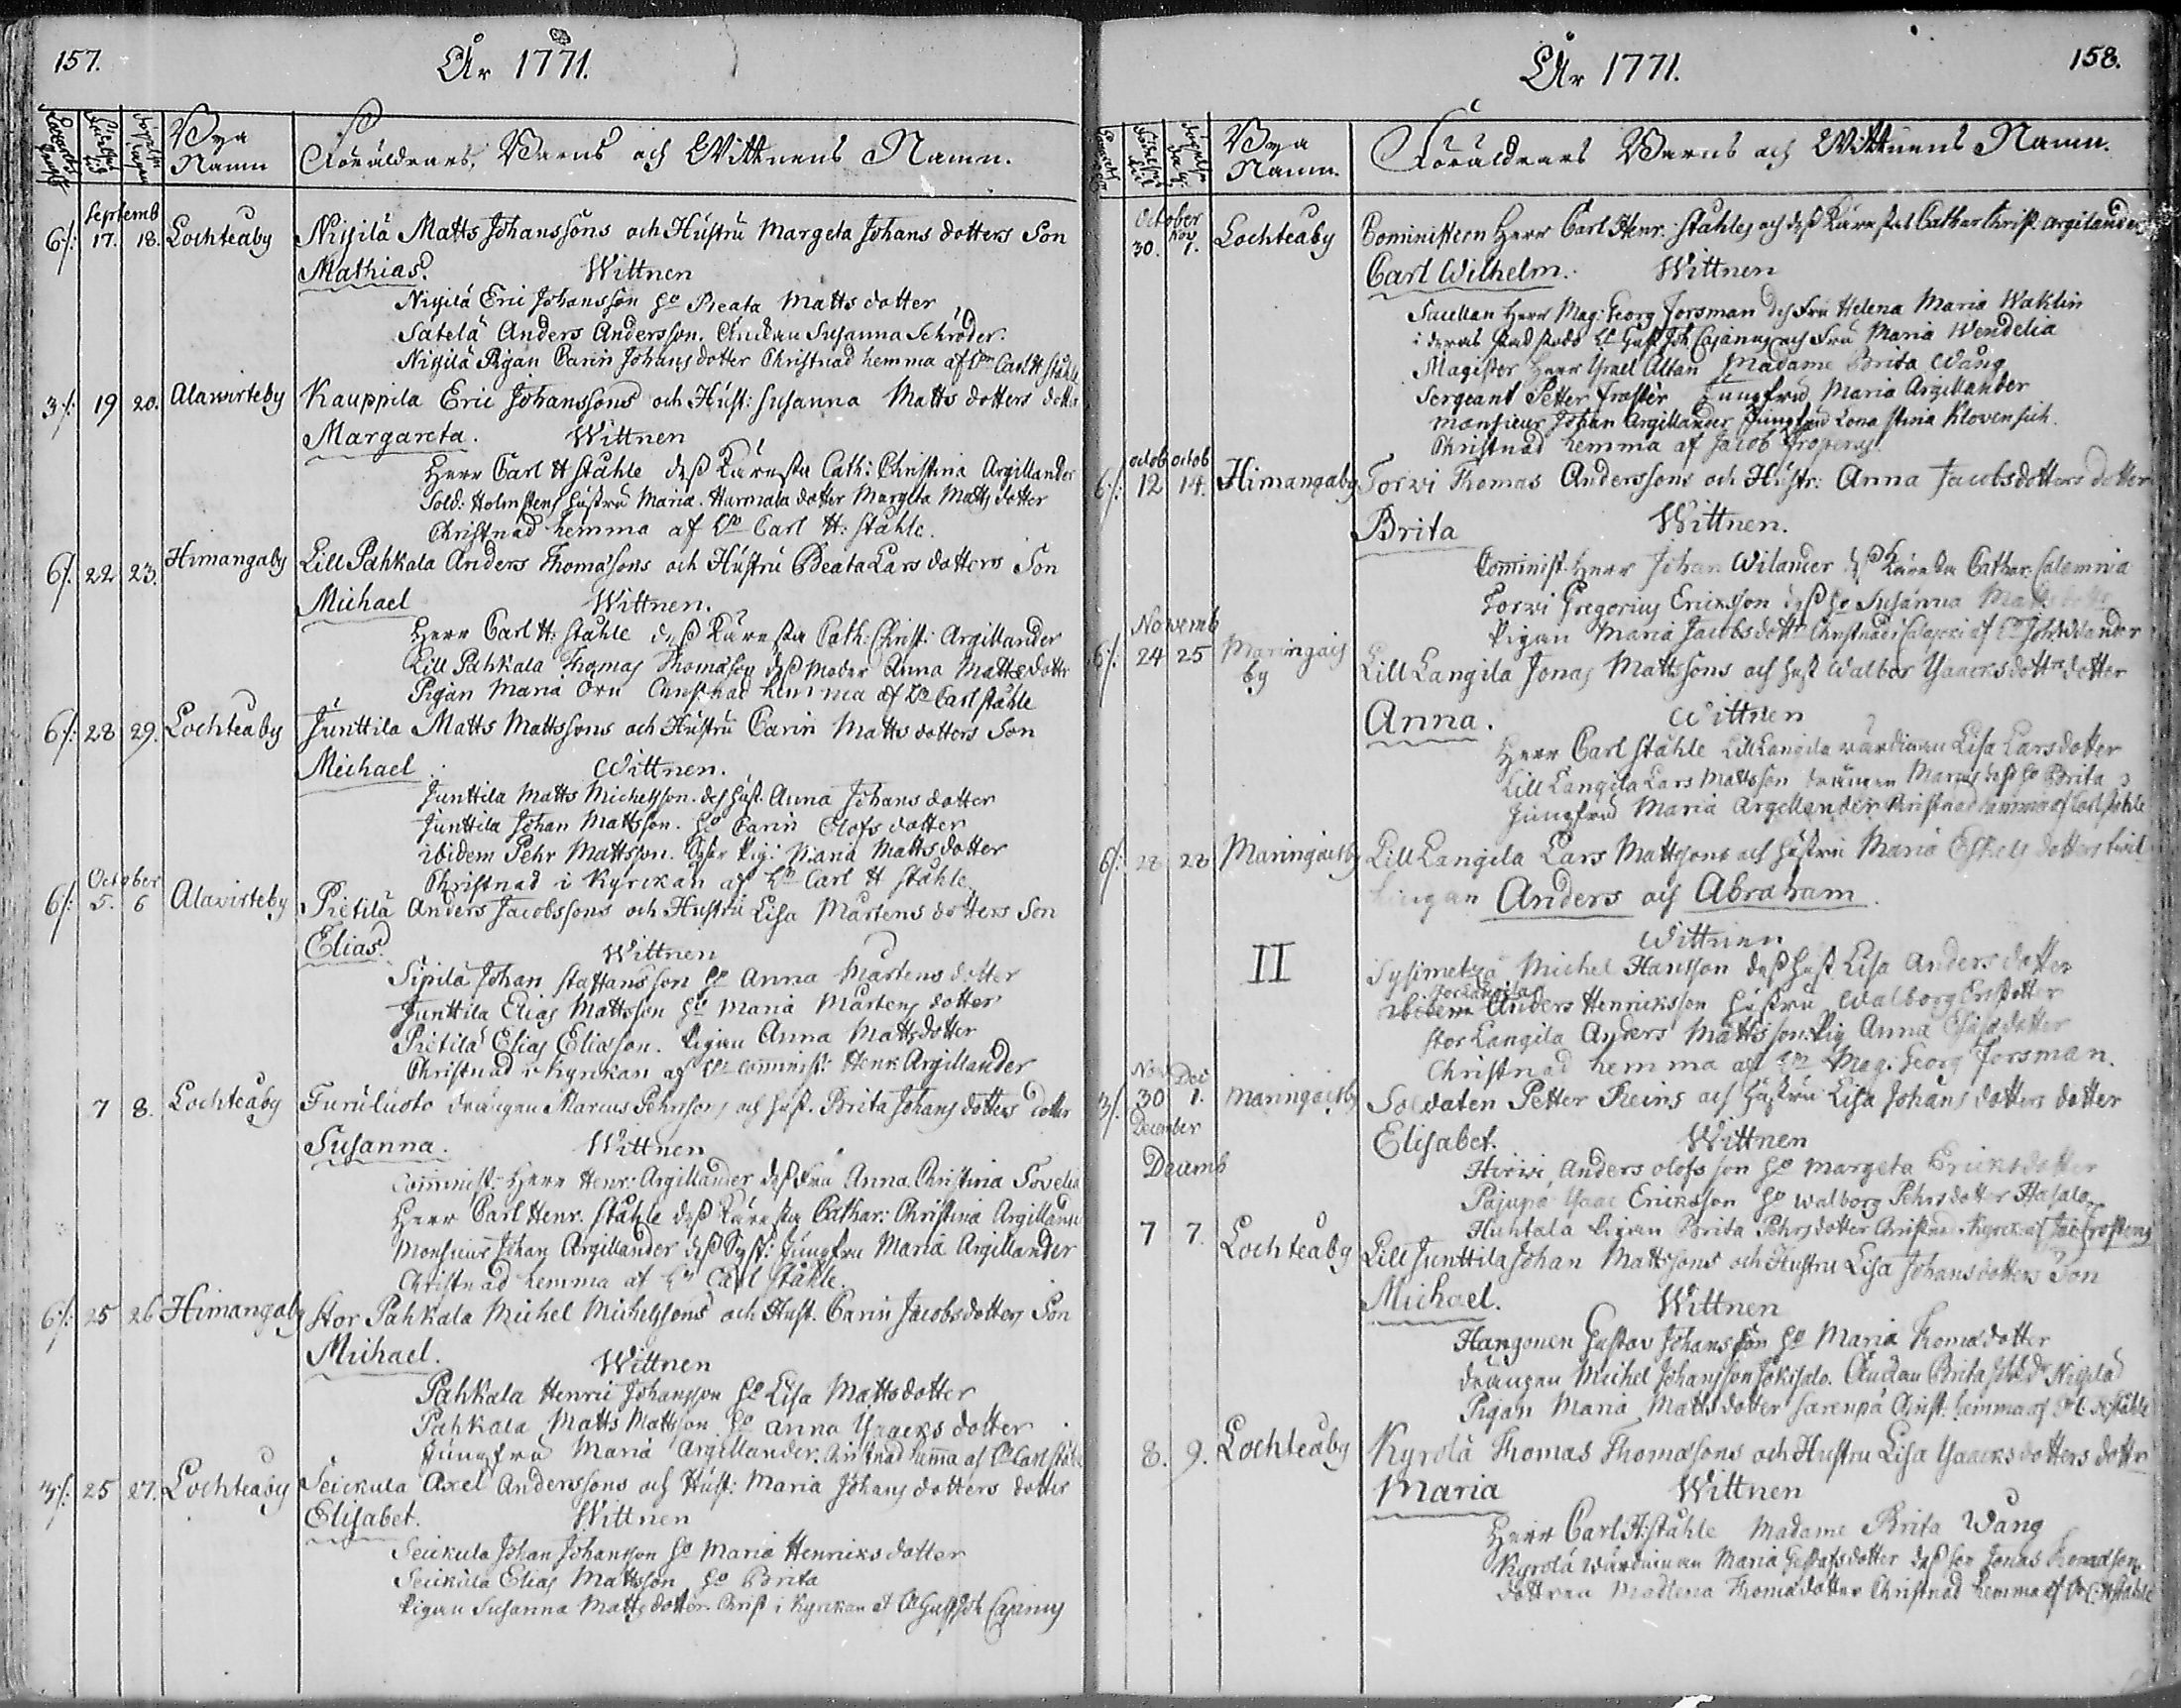 157.
År 1771.
Bya Namn
Föräldrars, Barns och Wittnens Namn.
Septemb
6/: 17. 18. Lochteaby Niſilä Matts Johansſons och Hustru Margeta Johans dotters Son
Mathias. Wittnen
Niſilä Eric Johansſon Ho Beata Matts dotter
Sätelä Anders Andersſon. Enckan Susanna Schröder.
Niſilä Pigan Carin Johans dotter Christnad hemma af Hr Carl H Ståhle
3/: 19 20. Alawirteby Kauppila Eric Johansſons och Hust: Susanna Matts dotters dotter
Margareta. Wittnen
Herr Carl H Ståhle deß Käresta Cath: Christina Argillander
Sold: Holmstens hustru Maria. Harmala dotter Margeta Matts dotter
Christnad hemma af Hr Carl H: Ståhle.
6/. 22 23. Himangaby Lill Pahkala Anders Thomasons och Hustru Beata Lars dotters Son
Michael Wittnen.
Herr Carl H: Ståhle deß Käresta Cath: Christ: Argillander
Lill Pahkala Thomas Thomason deß Moder Anna Matts dotter
Pigan Maria Orn Christnad hemma af Hr Carl Ståhle
6/: 28 29. Lochteaby Junttila Matts Mattsſons och Hustru Carin Matts dotters Son
Michael. Wittnen.
Junttila Matts Michelsſon. deß Hust. Anna Johans dotter
Junttila Johan Mattsſon. Ho Carin Olofs dotter
ibidem Pehr Mattsſon. Pig: Maria Matts dotter
Christnad i Kyrckan af Hr Carl H Ståhle
October
6/: 5. 6 Alavirteby Pietilä Anders Jacobsſons och Hustru Lisa Mårtens dotters Son
Elias. Wittnen
Sipilä Johan Staffansſon Ho Anna Mårtens dotter
Junttila Elias Mattsſon Ho Maria Mårtens dotter
Pietilä Elias Eliasſon. Pigan Anna Matts dotter
Christnad i Kyrckan af Hr Comminist: Henr: Argillander
7 8. Lochteaby Furuluoto drängen Marcus Pehrsſons och Hust. Brita Johans dotters dotter
Susanna. Wittnen
Comminist: Herr Henr: Argillander deß Fru Anna Christina Sovelia
Herr Carl Henr. Ståhle deß Käresta Cathar: Christina Argillander
Monsieur Johan Argillander deß Syst: Jungfru Maria Argillander
Christnad hemma af Hr Carl Ståhle.
6/: 25 26 Himangaby Stor Pahkala Michel Michelsſons och Hust. Carin Jacobsdotters Son
Michael. Wittnen
Pahkala Henric Johansſon Ho Lisa Mattsdotter
Pahkala Matts Mattsſon Ho Anna Ysaacks dotter
Jungfru Maria Argillander. Christnad hemma af Hr Carl Ståhle
3/: 25 27. Lochteaby Seickula Axel Andersſons och Hust: Maria Johans dotters dotter
Elisabet. Wittnen
Seickula Johan Johansſon Ho Maria Henricks dotter
Seickula Elias Mattsſon Ho Brita
Pigan Susanna Matts dotter. Christ i Kyrckan af Hr Gust Joh Cajanus
År 1771.
158.
Bya Namn.
Föräldrars Barns och Wittnens Namn.
October Nov
30. 1. Lochteaby Cominiſtern Herr Carl Henr: Ståhles och deß Kärestas Cathar Christ. Argilander
Carl Wilhelm. Wittnen
Herr Mag: Georg Forsman deß Fru Helena Maria Wahlin
i deras stad stodo Hr Gust Joh Cajanus och Fru Maria Wendelia
Magister Herr Ysrael Altan Madame Brita Wang
Sergeant Petter Jungfru Maria Argillander
Monsieur Johan Argillander Jungfru Lona Stina
Christnad hemma af Jacob Froperus
octob octob
6/: 12 14. Himangaby Torvi Thomas Andersſons och Hustr: Anna Jacobsdotters dotter
Brita Wittnen.
Comminist. Herr Johan Wilander deß Käresta Cathar: Calamnia
Torvi Gregorius Ericksſon deß Ho Susanna Matts dotter
Pigan Maria Jacobsdotter Christnad i Calajoki af Hr Joh Wilander
Novemb
6/: 24 25 Maringais by Lill Langila Jonas Mattsſons och Hust Walbor Ysaacks dotters dotter
Anna. Wittnen
Herr Carl Ståhle Lill Langila värdinnan Lisa Larsdotter
Lill Langila Lars Mattsſon drängen Marcus deß Ho Brita
Jungfru Maria Argellander Christnad hemma af Carl Ståhle
6/: 28 28 Maringaisby Lill Langila Lars Mattsſons och Hustru Maria Eskels dotters twil-
lingan Anders och Abraham.
Wittnen
II Sysimetsä Michel Hansſon deß Hust Lisa Anders dotter
Stor Langila
ibidem Anders Henricksſon Hustru Walborg Ersdotter
Stor Langila Anders Mattsſon Pig Anna dotter
Christnad hemma af Hr Mag: Georg Forsman.
Nov Dec
3/. 30 1. Maringaisby Soldaten Petter Reins och Hustru Lisa Johans dotters dotter
December
Elisabet. Wittnen
Decemb
Hirvi, Anders Olofsſon Ho Margeta Ericksdotter
Pajupä Ysaac Ericksſon Ho Walborg Pehrsdotter Hasala
Huhtala Pigan Brita Pehrsdotter Christnad i Kyrck af Jac Frosterus
7 7. Lochteaby Lill Junttila Johan Mattsſons och Hustru Lisa Johansdotters Son
Michael. Wittnen
Hangonen Gustav Johansſon Ho Maria Thomasdotter
drängen Michel Johansſon Jokisalo. Enckan Brita Niſilä
Pigan Maria Matts dotter Sarenpä Christ: hemma af Hr C. H Ståhle
8. 9. Lochteaby Kyrölä Thomas Thomasſons och Hustru Lisa Ysaacks dotters dotter
Maria Wittnen
Herr Carl H: Ståhle Madame Brita Wang
Kyrölä Wärdinnan Maria Gustafsdotter deß son Jonas Thomasſon
dottren Madlena Thomasdotter Christnad hemma af Hr C. H Ståhle